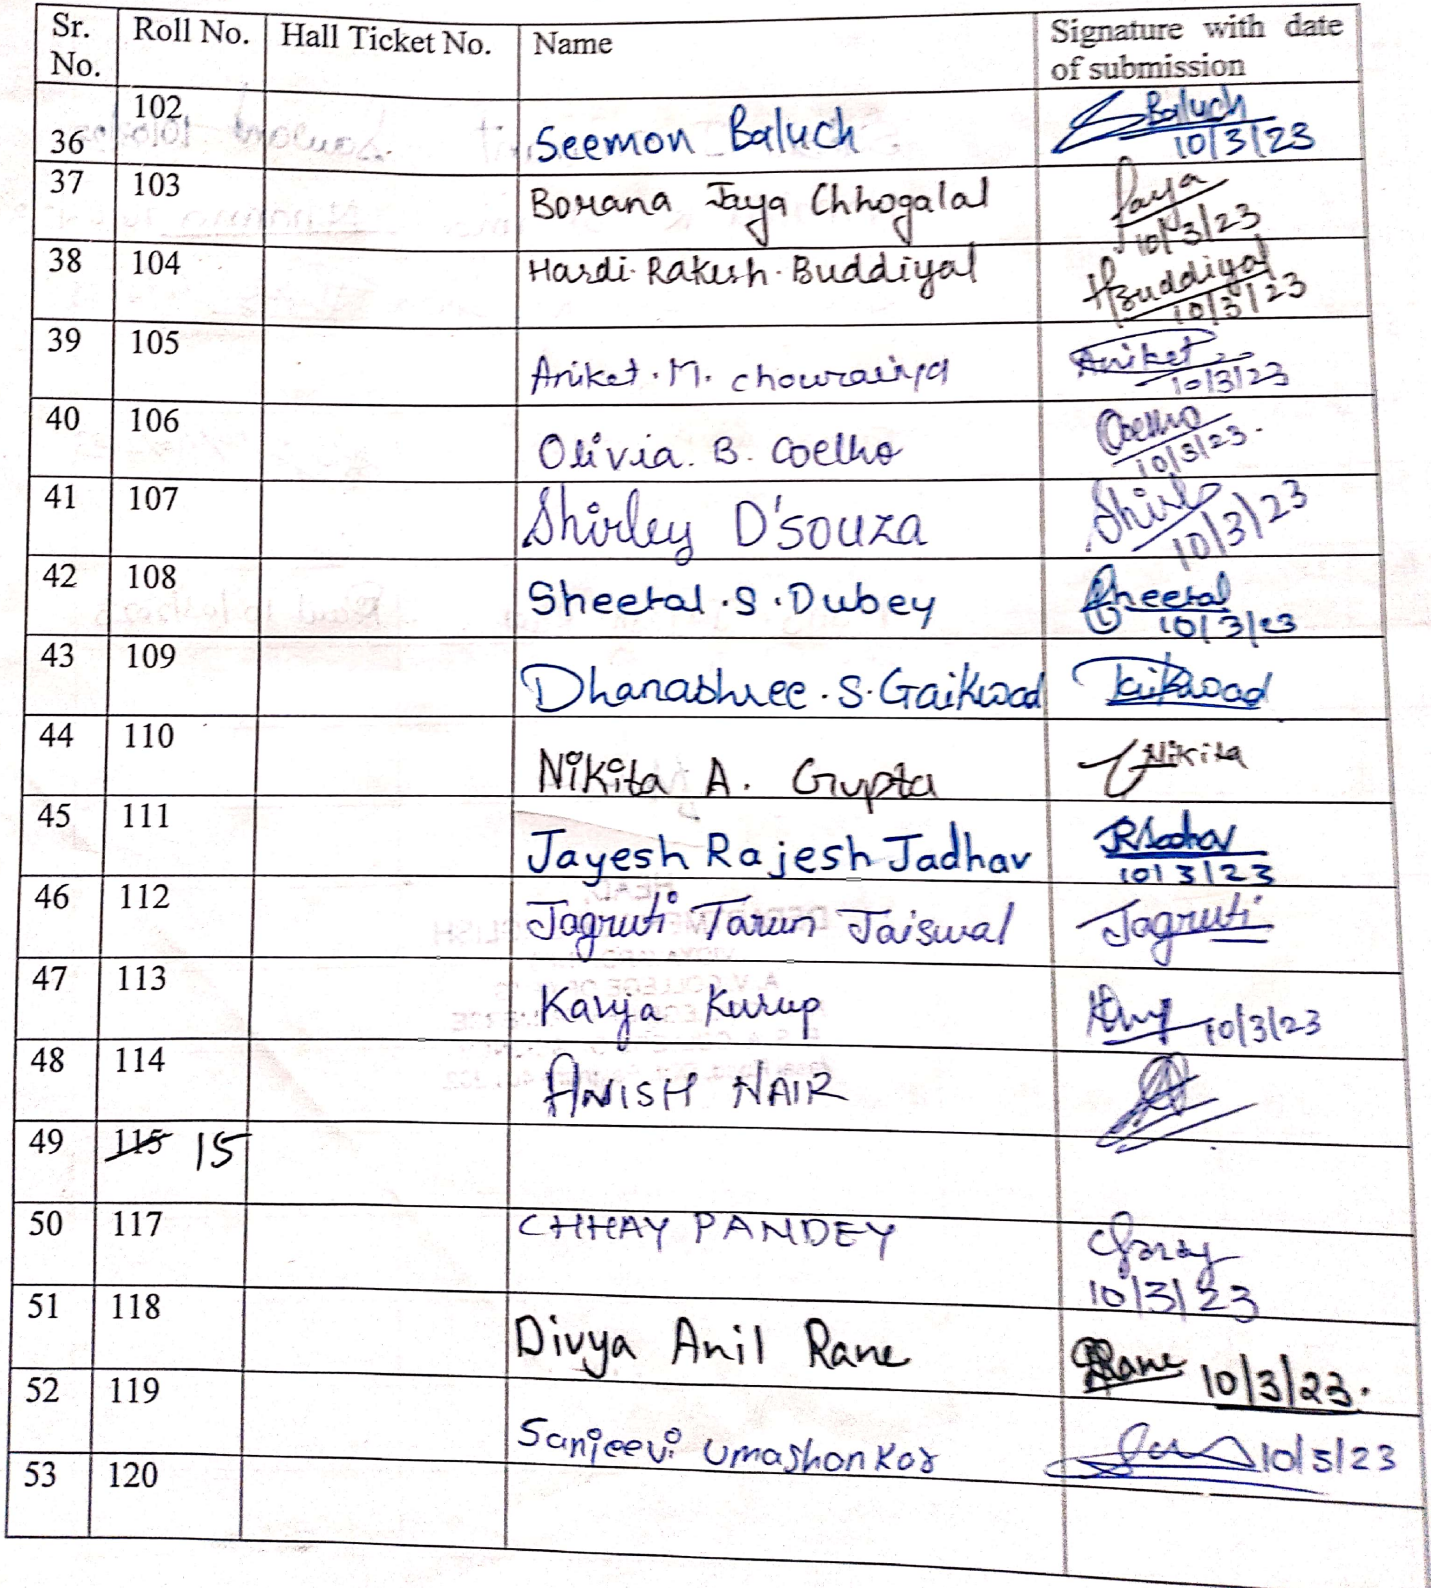 Sr. No. Roll No. Hall Ticket No. Name Signature with date of submission
36 102 Seemon Baluch Baluch 10/3/23
37 103 Borana Jaya Chhogalal Jaya 10/3/23
38 104 Hardi Rakesh Buddiyal HBuddiyal 10/3/23
39 105 Aniket. M. Chourasiya Aniket 10/3/23
40 106 Olivia. B. Coelho Coelho 10/3/23.
41 107 Shirley D'souza 10/3/23
42 108 Sheetal .S .Dubey Sheetal 10/3/23
43 109 Dhanashree .S. Gaikwad Gaikwad
44 110 Nikita A. Gupta Nikita
45 111 Jayesh Rajesh Jadhav JRJadhav 10/3/23
46 112 Jagruti Tarun Jaiswal Jagruti
47 113 Kavya Kurup 10/3/23
48 114 ANISH NAIR
49 115 15
50 117 CHHAY PANDEY 10/3/23
51 118 Divya Anil Rane Rane 10/3/23.
52 119 Sanjeevi Umashankar 10/3/23
53 120